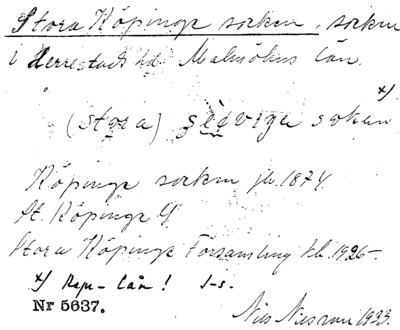 Stora Köpinge socken, socken
i Herrestads hd. Malmöhus län.
x)
(stora) sɛ̀əvɪŋa sokən
Köpinge socken jb. 1874.
St. Köpinge
Stora Köpinge Församling kb. 1926–
x) Rep-län! I-s.
Nr 5637.
Nils Nilsson 1933.